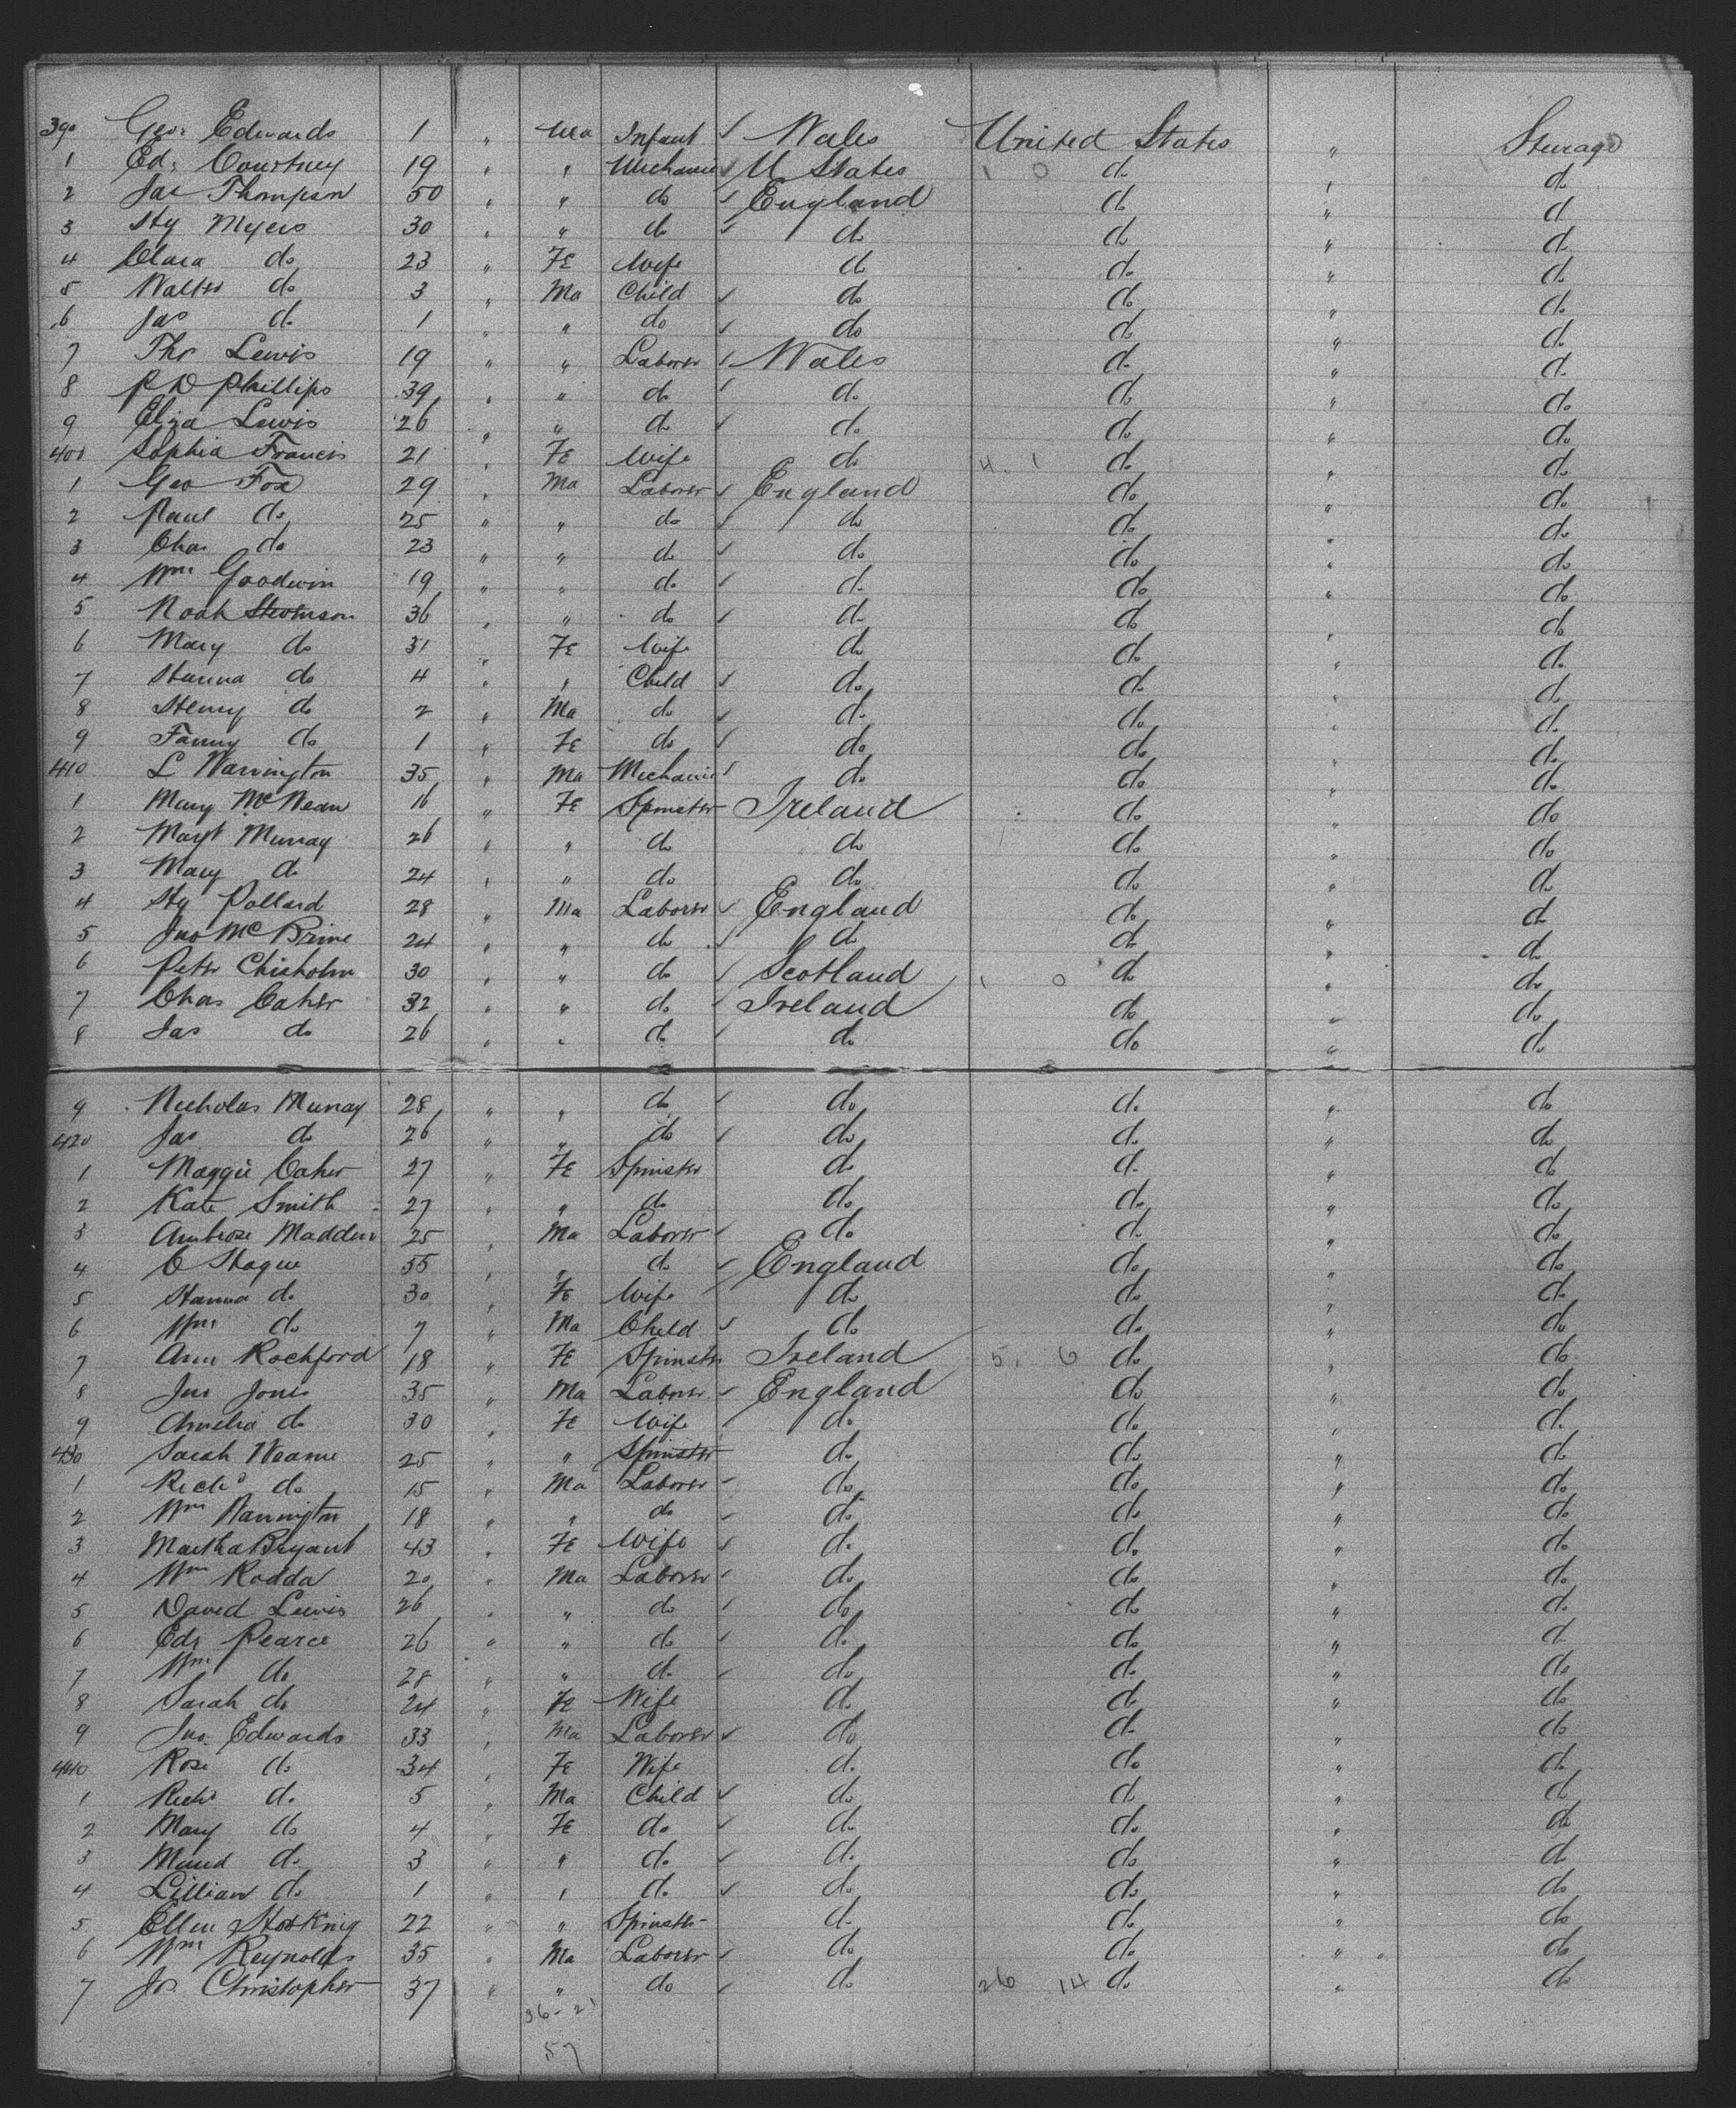 390 Geo: Edwards 1 " Ma Infant ✓ Wales United States " Steerage
1 Ed: Courtney 19 " " Mechanic ✓ U States 1 0 do " do
2 Jas Thompson 50 " " do ✓ England do " do
3 Hy Myers 30 " " do ✓ do do " do
4 Clara do 23 " Fe Wife do do " do
5 Walter do 3 " Ma Child ✓ do do " do
6 Jas do 1 " " do ✓ do do " do
7 Tho Lewis 19 " " Laborer ✓ Wales do " do
8 P D Phillips 39 " " do ✓ do do " do
9 Eliza Lewis 26 " " do ✓ do do " do
400 Sophia Francis 21 " Fe Wife do 4. 1 do " do
1 Geo Fox 29 " Ma Laborer ✓ England do " do
2 Paul do 25 " " do ✓ do do " do
3 Chas do 23 " " do ✓ do do " do
4 Wm Goodwin 19 " " do ✓ do do " do
5 Noah 36 " " do ✓ do do " do
6 Mary do 31 " Fe Wife do do " do
7 Hanna do 4 " " Child ✓ do do " do
8 Henry do 2 " Ma do ✓ do do " do
9 Fanny do 1 " Fe do ✓ do do " do
410 L Warrington 35 " Ma Mechanic ✓ do do " do
1 Mary 16 " Fe Spinster Ireland do " do
2 Magt Murray 26 " " do do do " do
3 Mary do 24 " " do do do " do
4 Hy Pollard 28 " Ma Laborer ✓ England do " do
5 Jno McBrine 24 " " do ✓ do do " do
6 Peter Chisholm 30 " " do ✓ Scotland 1 0 do " do
7 Chas Caher 32 " " do ✓ Ireland do " do
8 Jas do 26 " " do ✓ do do " do
9 Nicholas Murray 28 " " do ✓ do do " do
420 Jas do 26 " " do ✓ do do " do
1 Maggie Caher 27 " Fe Spinster do do " do
2 Kate Smith 27 " " do do do " do
3 Ambrose Madden 25 " Ma Laborer ✓ do do " do
4 C Hague 55 " " do ✓ England do " do
5 Hanna do 30 " Fe Wife do do " do
6 Wm do 7 " Ma Child ✓ do do " do
7 Ann Rochford 18 " Fe Spinster Ireland 5. 6 do " do
8 Jno Jones 35 " Ma Laborer ✓ England do " do
9 Amelia do 30 " Fe Wife do do " do
430 Sarah Wearne 25 " " Spinster do do " do
1 Richd do 15 " Ma Laborer ✓ do do " do
2 Wm Warrington 18 " " do ✓ do do " do
3 Martha Bryant 43 " Fe Wife ✓ do do " do
4 Wm Rodda 20 " Ma Laborer ✓ do do " do
5 David Lewis 26 " " do ✓ do do " do
6 Edr Pearce 26 " " do ✓ do do " do
7 Wm do 28 " " do ✓ do do " do
8 Sarah do 24 " Fe Wife do do " do
9 Jno. Edwards 33 " Ma Laborer ✓ do do " do
440 Rose do 34 " Fe Wife do do " do
1 Richd do 5 " Ma Child ✓ do do " do
2 Mary do 4 " Fe do ✓ do do " do
3 Maud do 3 " " do ✓ do do " do
4 Lillian do 1 " " do ✓ do do " do
5 Ellen Hosking 22 " " Spinster do do " do
6 Wm Reynolds 35 " Ma Laborer ✓ do do " do
7 Js. Christopher 37 " " do ✓ do 26 14 do " do
36-21
57